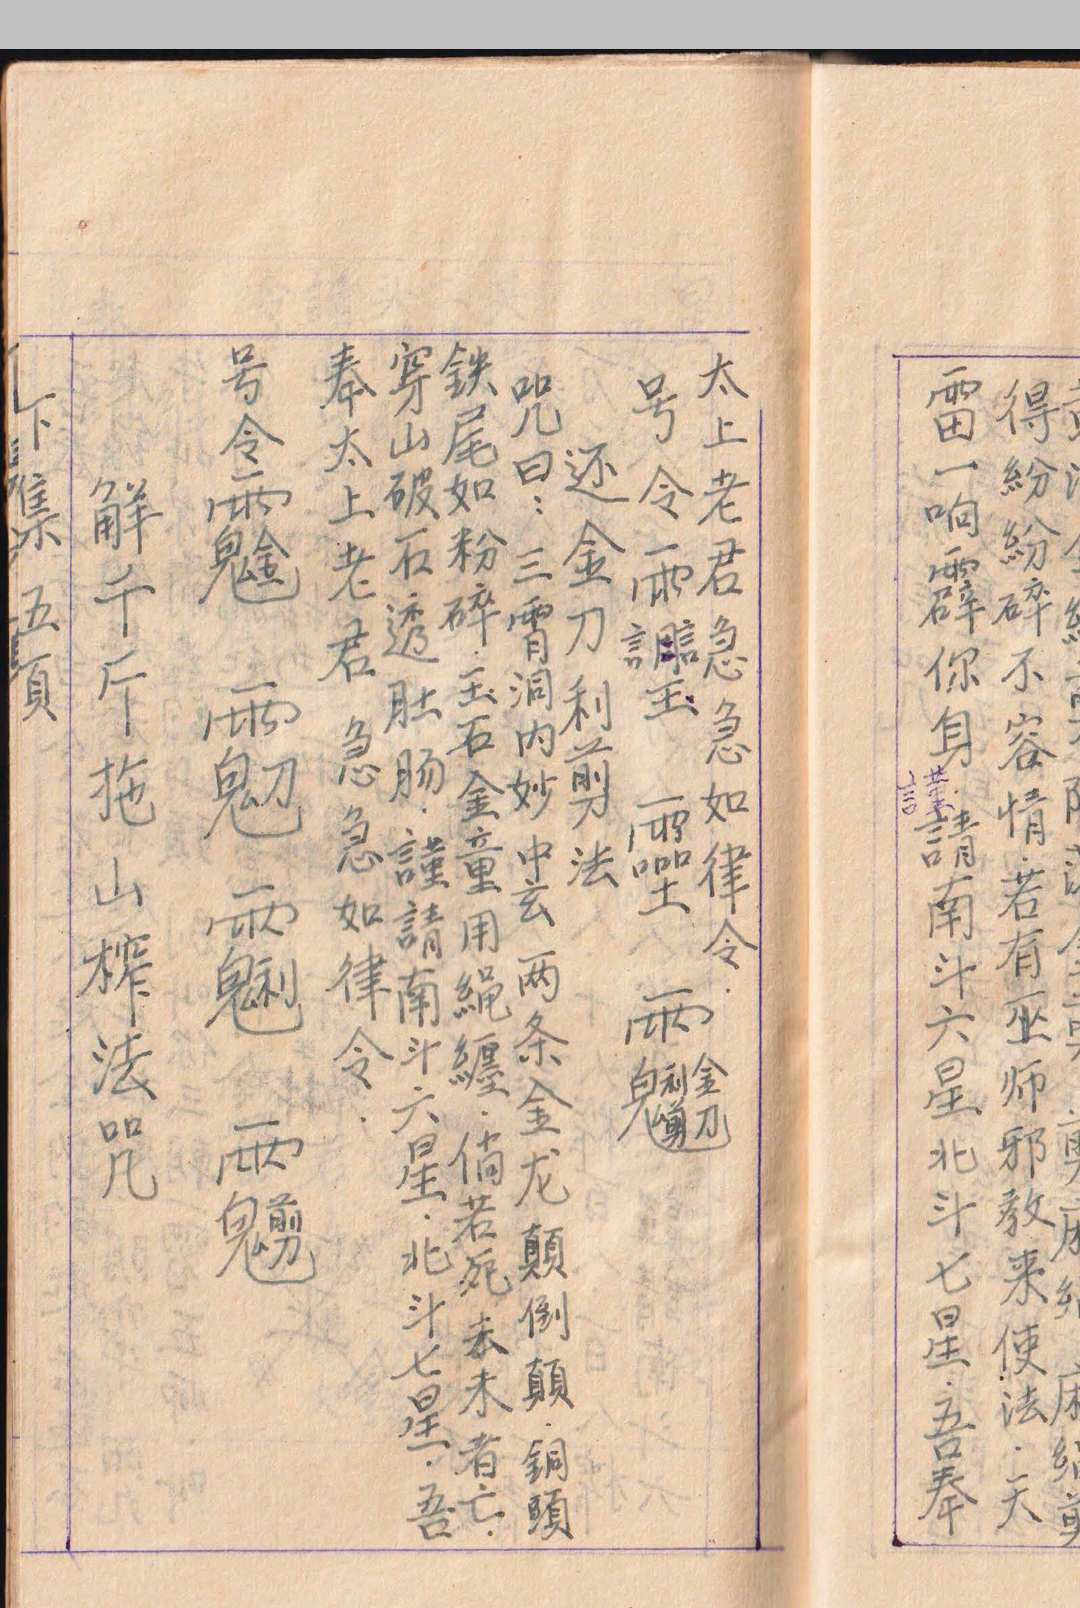 得紛紛碎不容情.若有巫师邪教来使法.天
雷一响霹你身.謹請南斗六星北斗七星.吾奉
太上老君急急如律令.
号令
还金刀利剪法
咒曰:三霄洞内妙中玄两条金龙顛倒顛.銅頭
鉄尾如粉碎.玉石金童用绳纏.倘若死去未者亡.
穿山破石透肚肠.謹請南斗六星.北斗七星.吾
奉太上老君急急如律令.
号令
解千斤拖山榨法咒
下集 五頁